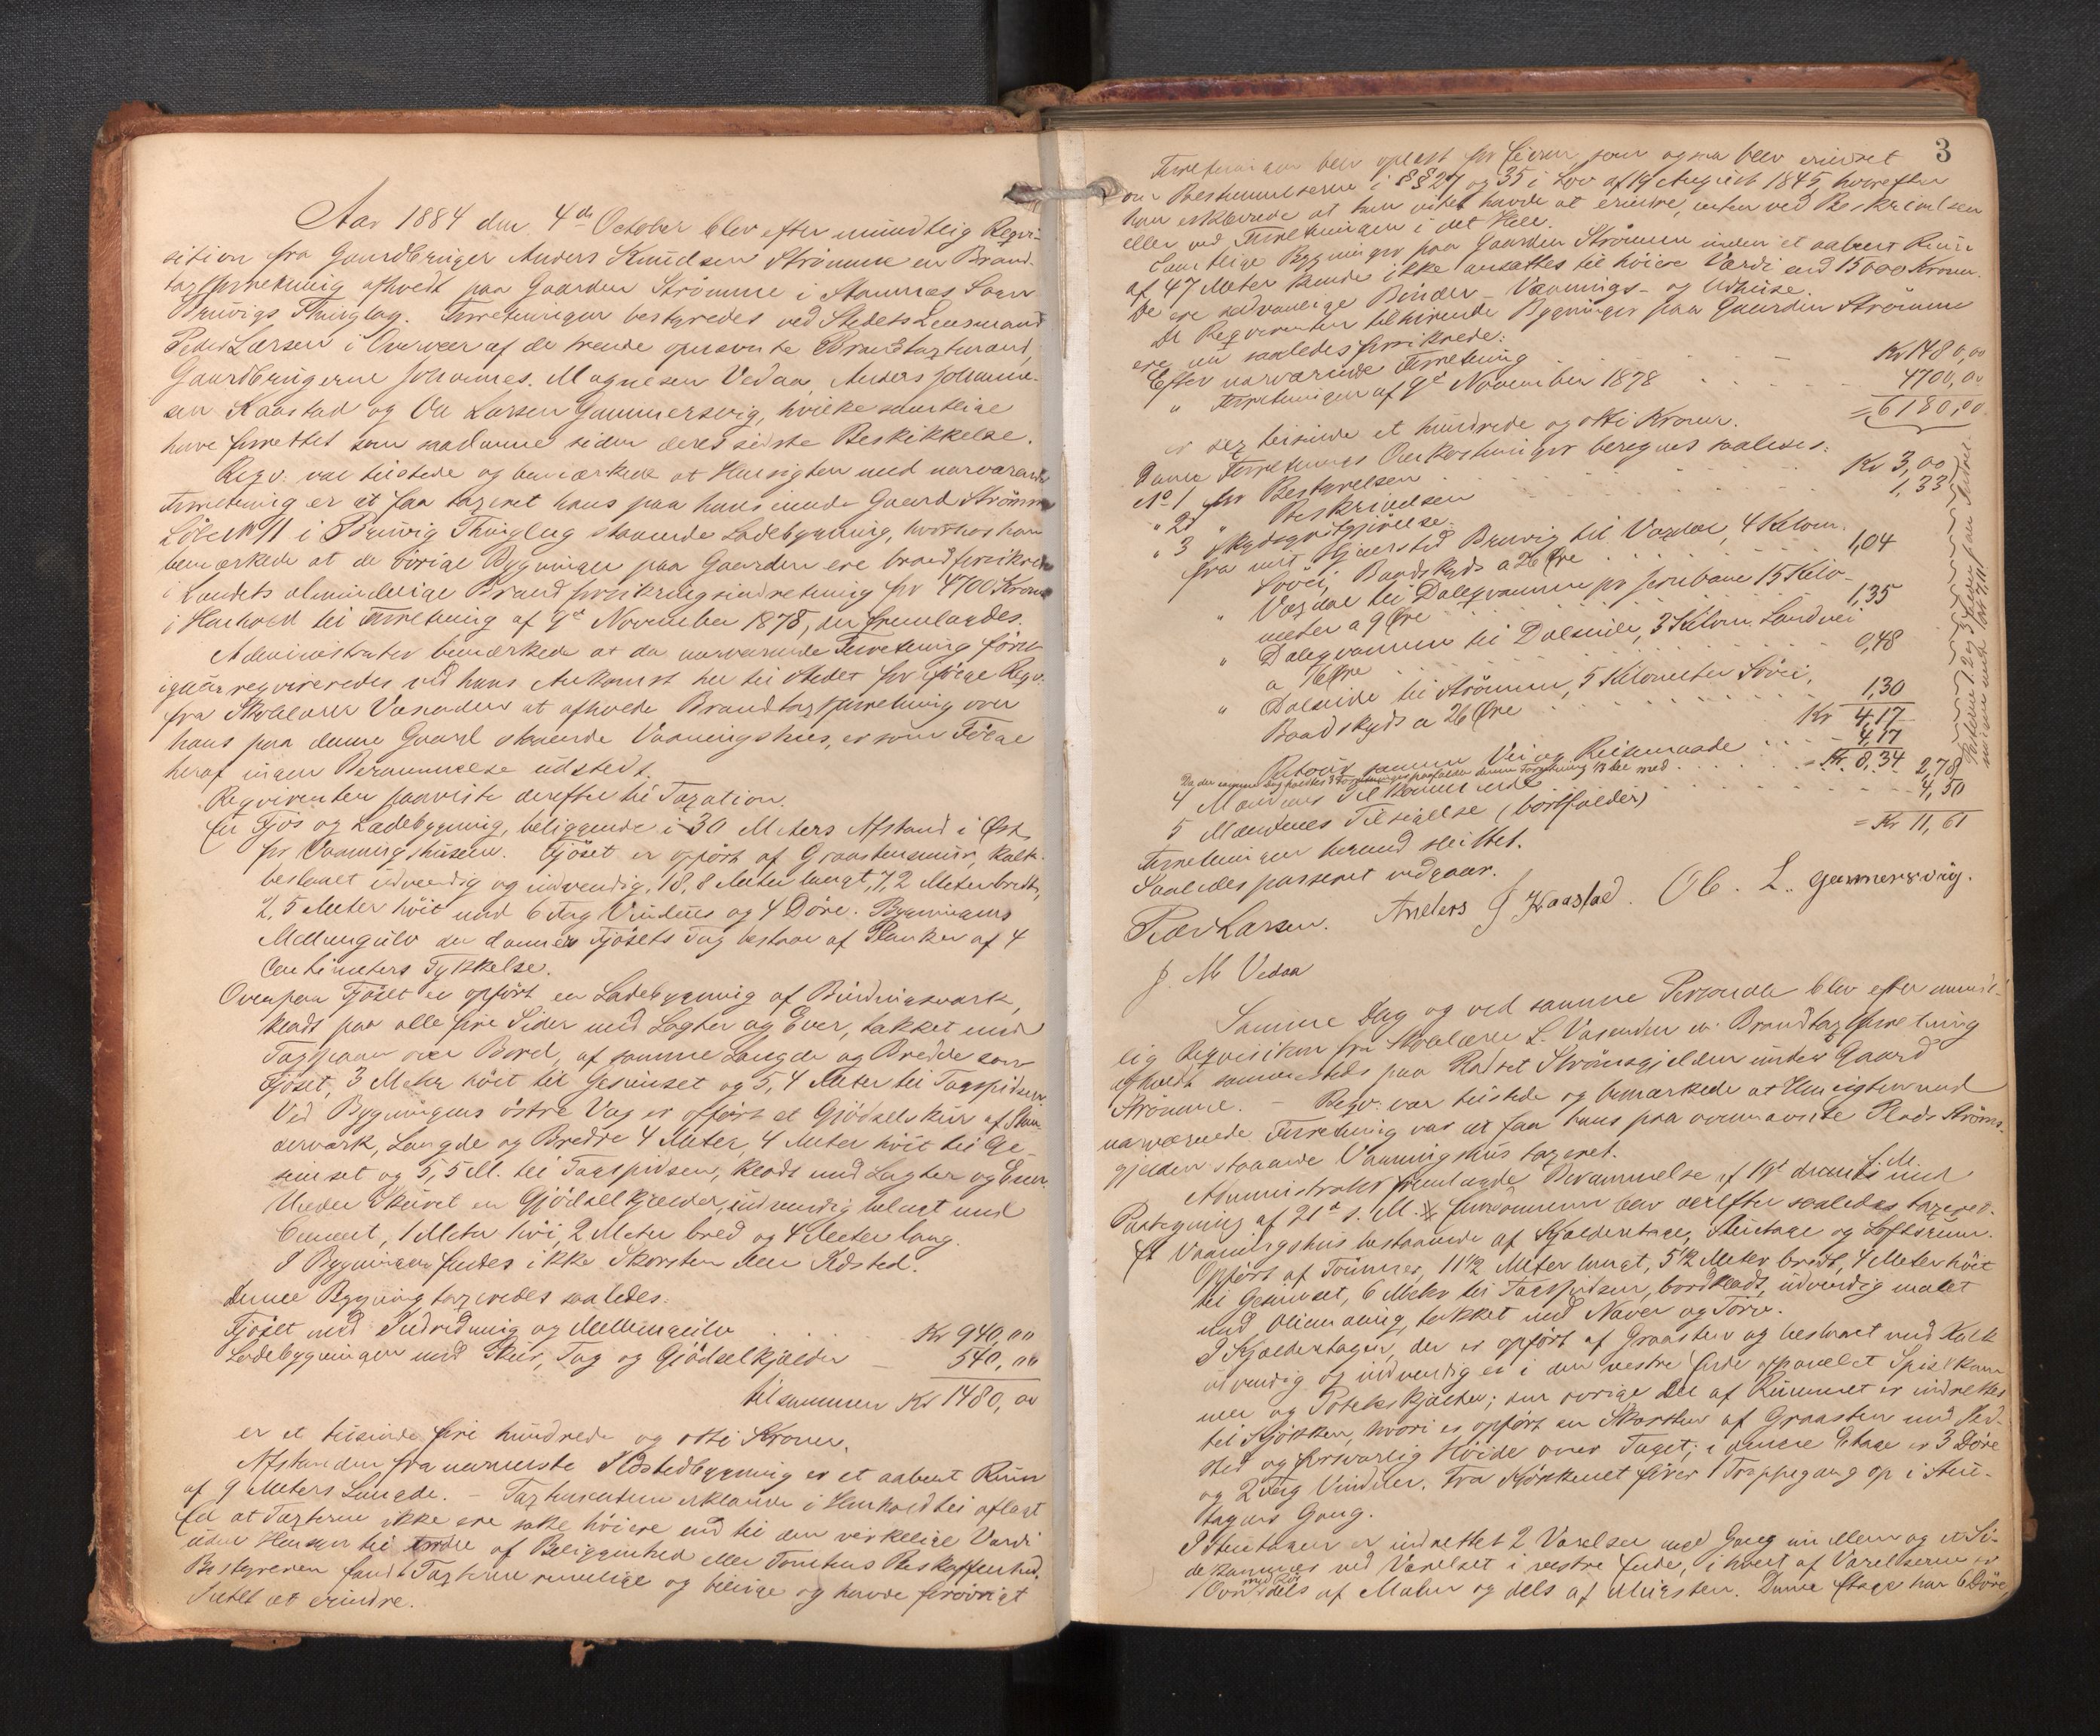 Aar 1884 den 4de October blev efter mundtlig Reqvi-
sition fra Gaardbruger Anders Knudsen Strømme en Brand-
taxtforretning afholdt paa Gaarden Strømme i Stamnes Sogn
Bruvigs Thinglag. Forretningen bestyredes ved Stedets Lensmand
Peder Larsen i Overvær af de trende opnævnte Brandtaxtmænd,
Gaardbrugerne Johannes Magnesen Vedaa, Anders Johanne-
sen Kaastad og Ole Larsen Gammersvig, hvilke samtlige
have forrettet som saadanne siden deres sidste Beskikkelse.
Reqv: var tilstede og bemærkede at Hensigten med nærværende
Forretning er at faa taxeret hans paa hans iende Gaard Strømme
Løbe № 11 i Bruvig Thinglag staaende Ladebygning, hvorhos han
bemærkede at de øvrige Bygninger paa Gaarden ere brandforsikrede
i Landets almindelige Brandforsikringsindretning for 4700 Kroner
i Henhold til Forretning af 9de November 1878, der fremlagdes.
Administrator bemærkede at da nærværende Forretning først
igaar reqvireredes ved hans Ankomst her til Stedet for ifølge Reqv:
fra Skolelærer Vasenden at afholde Brandtaxtforretning over
hans paa denne Gaard staaende Vaaningshus, er som Følge
heraf ingen Berammelse udstedt.
Reqvirenten paaviste derefter til Taxation.
En Fjøs og Ladebygning, beliggende i 30 Meters Afstand i Øst
for Vaaningshusene. Fjøset er opført af Graastensmur, kalk-
beslaaet udvendig og indvendig, 18,8 Meter langt, 7,2 Meter bredt,
2,5 Meter høit med 6 Fag Vinduer og 4 Døre. Bygningens
Mellemgulv der danner Fjøsets Tag bestaar af Planker af 4
Centimeters Tykkelse.
Ovenpaa Fjøset er opført en Ladebygning af Bindingsværk,
klædt paa alle fire Sider med Lægter og Ever, tækket med
Tagspaan over Bord, af samme Længde og Bredde som
Fjøset, 3 Meter høit til Gesimset og 5,4 Meter til Tagspidsen.
Ved Bygningens østre Væg er opført et Gjødselskur af Stan-
derværk, Længde og Bredde 4 Meter, 4 Meter høit til Ge-
simset og 5,5 M. til Tagspidsen, klædt med Lægter og Ever.
Under Skuret en Gjødselkjælder, indvendig belagt med
Cement, 1 Meter høi, 2 Meter bred og 4 Meter lang.
I Bygningen findes ikke Skorsten eller Ildsted.
Denne Bygning taxeredes saaledes:
Fjøset med Indredning og Mellemgulv . . . Kr 940,00
Ladebygningen med Skur, Tag og Gjødselkjælder — 540,00
tilsammen Kr 1480,00
er et tusinde fire hundrede og otti Kroner.
Afstanden fra nærmeste Ildstedbygning er et aabent Rum
af 9 Meters Længde. – Taxtmændene erklærede i Henhold til aflagt
Ed at Taxterne ikke ere satte høiere end til den virkelige Værdi
uden Hensyn til Andre af Beliggenhed eller Tomtens Beskaffenhed.
Bestyreren fandt Taxterne rimelige og billige og havde forøvrigt
Intet at erindre.
3
Forretningen blev oplæst for Eieren, som ogsaa blev erindret
om Bestemmelserne i §§ 27 og 35 i Lov af 19 August 1845, hvorefter
han erklærede at han intet havde at erindre, enten ved Beskrivelsen
eller ved Forretningen i det Hele.
Samtlige Bygninger paa Gaarden Strømme inden et aabent Rum
af 47 Meter kunde ikke ansættes til høiere Værdi end 15000 Kroner.
De ere sædvanlige Bønder- Vaanings- og Udhuse.
De Reqvirenten tilhørende Bygninger paa Gaarden Strømme
ere nu saaledes forsikrede:
Efter nærværende Forretning . . . Kr 1480,00
" Forretningen af 9de November 1878 . . . 4700,00
= 6180,00
er sex tusinde et hundrede og otti Kroner.
Denne Forretnings Omkostninger beregnes saaledes:
№ 1 for Bestyrelsen . . . Kr 3,00
" 2 " Beskrivelsen . . . 1,33
" 3 Skydsgodtgjørelse:
fra mit Hjemsted Bruvig til Vaxdal, 4 Kilom.
Søvei, Baadskyds a 26 Øre . . . 1,04
" Vaxdal til Dalegvammen pr Jernbane 15 Kilo-
meter a 9 Øre . . . 1,35
" Dalegvammen til Dalseide, 3 Kilom. Landvei
a 16 Øre . . . 0,48
" Dalseide til Strømme, 5 Kilometer Søvei,
Baadskyds a 26 Øre . . . 1,30
Kr 4,17
Retour samme Vei og Reisemaade . . . 4,17
= Kr. 8,34
Da der samme Dag holdtes 3 Forretninger paafalder denne Forretning 1/3 Del med . . . 2,78
4 Mændenes Tilkommende . . . 4,50
5 Mændenes Tilsigelse (bortfalder)
= Kr 11,61
Forretningen hermed sluttet.
Saaledes passeret vidgaar.
Peder Larsen. Anders J Kaastad. Ole. L. Gammersvig.
J. M Vedaa
Samme Dag og ved samme Personale blev efter mundt-
lig Reqvisition fra Skolelærer L. Vasenden en Brandtaxtforretning
afholdt sammesteds paa Pladset Strømsgjelden under Gaard
Strømme. – Reqv: var tilstede og bemærkede at Hensigten med
nærværende Forretning var at faa hans paa ovennævnte Plads Strøms-
gjelden staaende Vaaningshus taxeret.
Administrator fremlagde Berammelse af 19de f. M. med
Paategning af 21de s. M. Eiendommen blev derefter saaledes taxered:
Et Vaaningshus bestaaende af Kjælderetage, Stuetage og Loftsrum.
Opført af Tømmer, 11 1/2 Meter langt, 5 1/2 Meter bredt, 4 Meter høit
til Gesimset, 6 Meter til Tagspidsen, bordklædt, udvendig malet
med Oliemaling, tækket med Næver og Torv.
I Kjælderetagen, der er opført af Graasten og beslaaet med Kalk
udvendig og indvendig er i den vestre Ende afpanelet Spiskam-
mer og Potetkjælder; den øvrige Del af Rummet er indrettet
til Kjøkken, hvori er opført en Skorsten af Graasten med Ild-
sted og forsvarlig Høide over Taget; i denne Etage er 3 Døre
og 2 Fag Vinduer. Fra Kjøkkenet fører 1 Trappegang op i Stue-
tagens Gang.
I Stuetagen er indrettet 2 Værelser med Gang imellem og et Si-
dekammer ved Værelset i vestre Ende, i hvert af Værelserne er
1 Ovn med Rør dels af Malm og dels af Mursten. Denne Etage har 6 Døre,